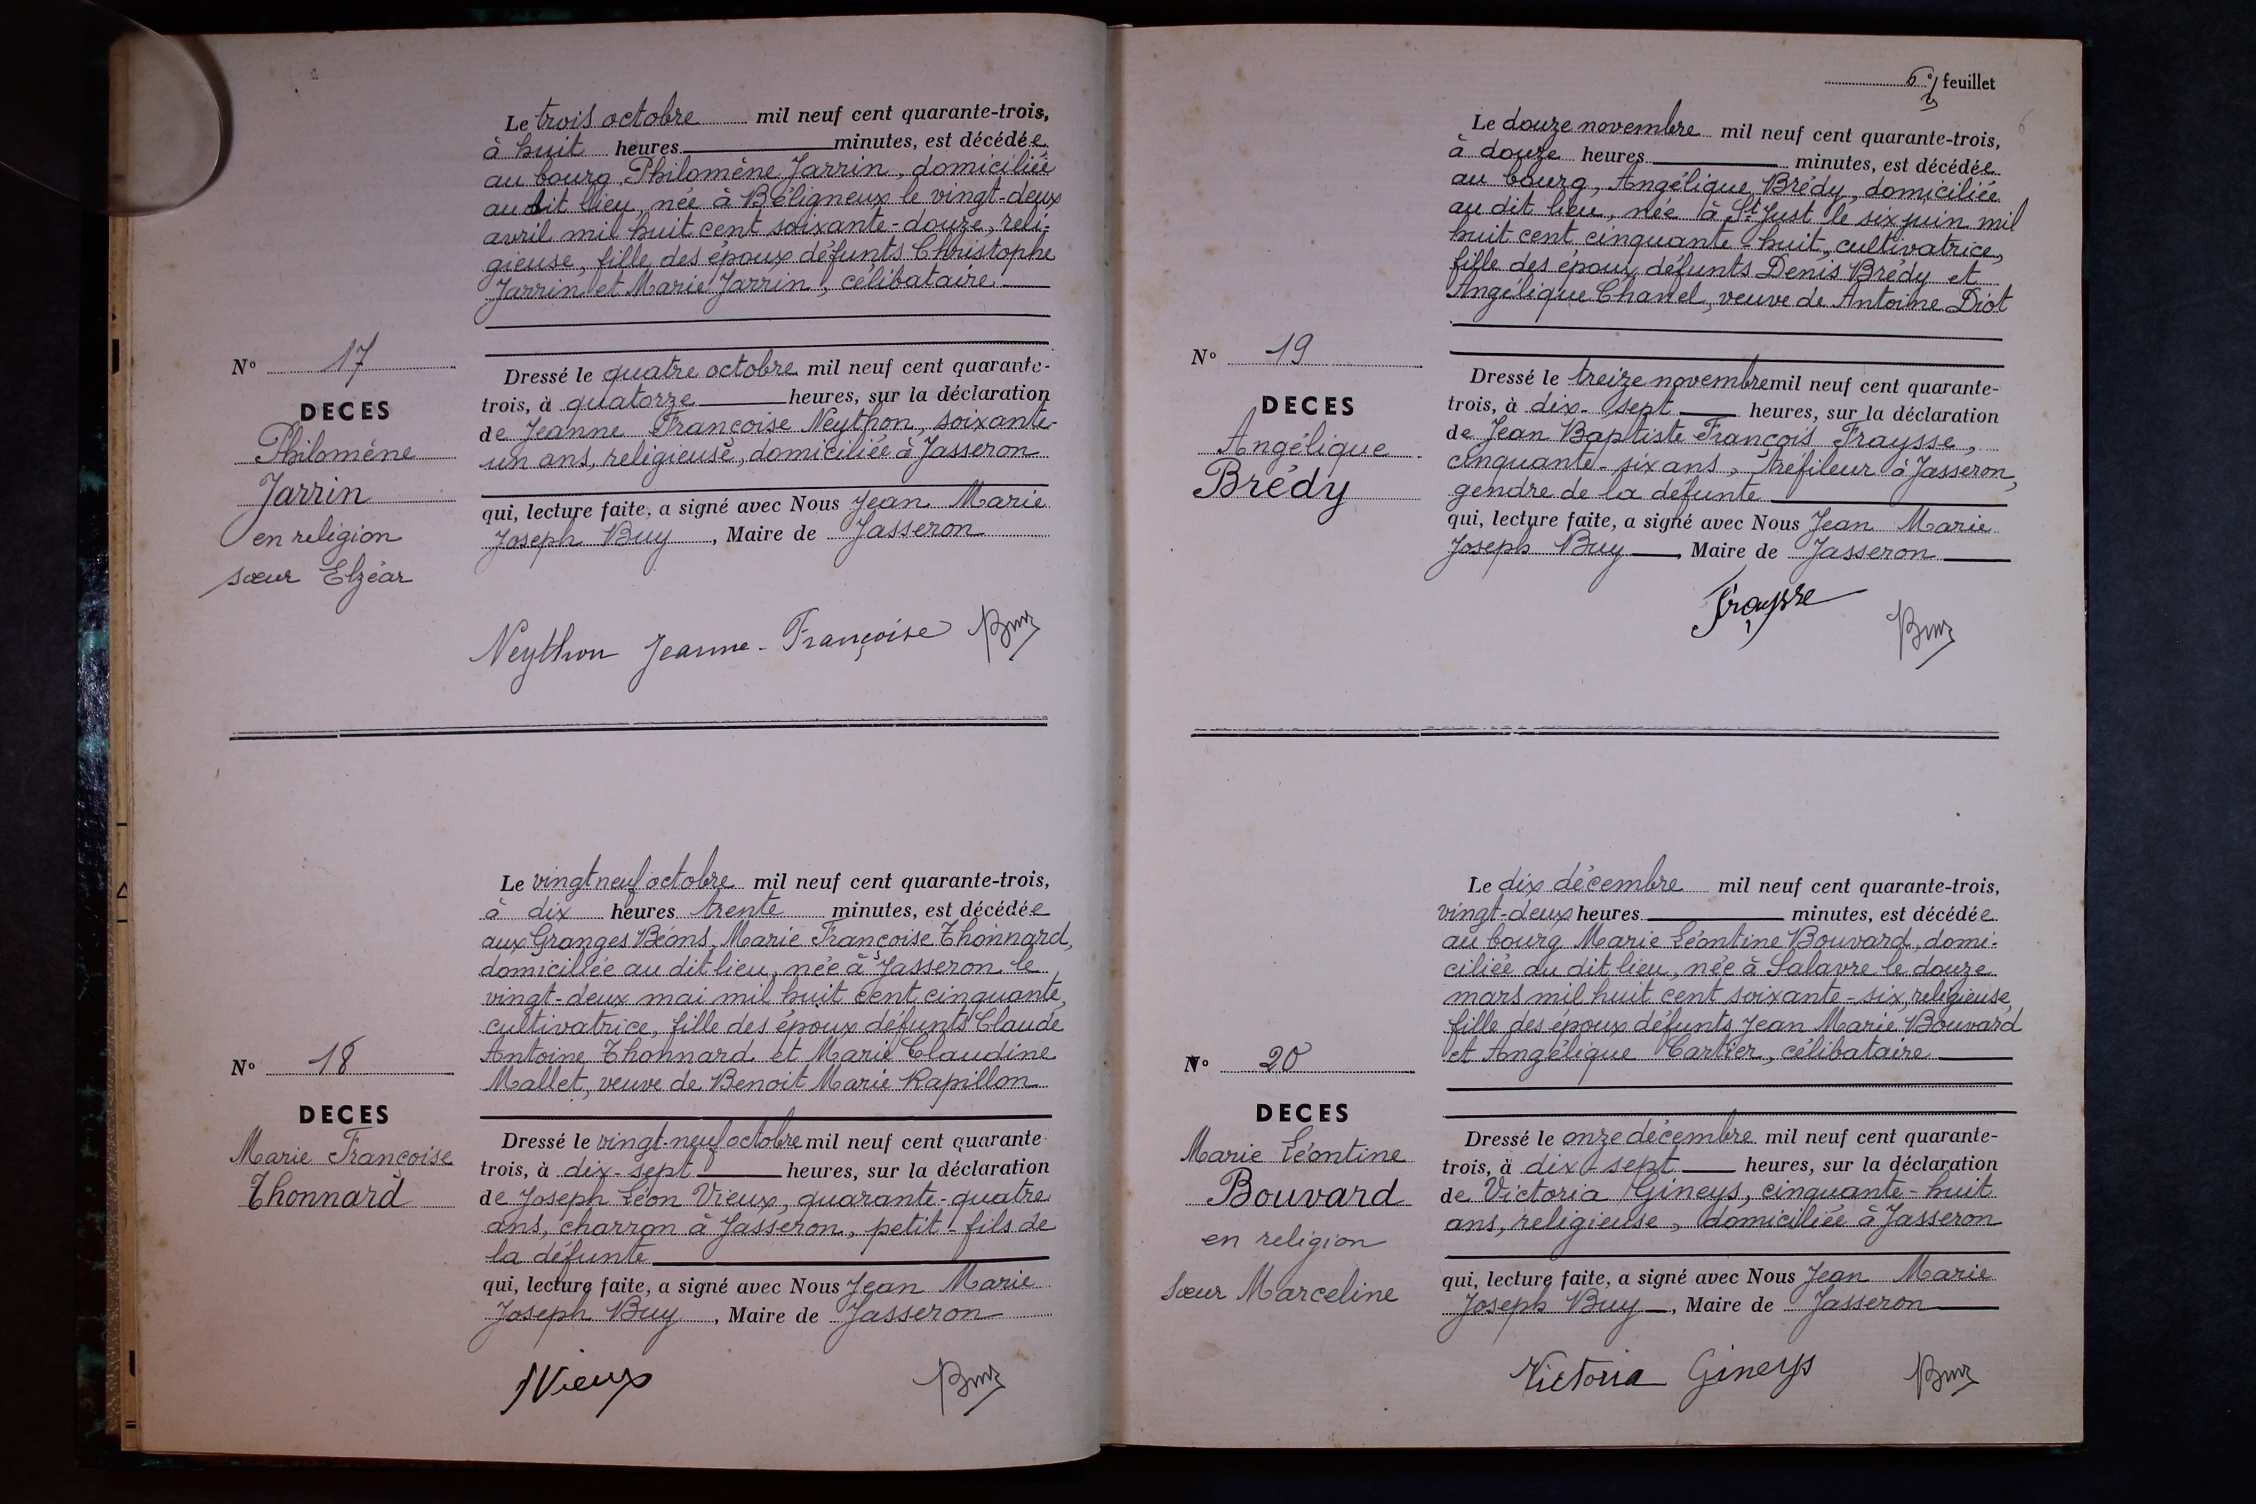 Le trois octobre mil neuf cent quarante-trois,
à huit heures minutes, est décédée
au bourg, Philomène Jarrin, domiciliée
au dit lieu, née à Béligneux le vingt-deux
avril mil huit cent soixante-douze, reli-
gieuse, fille des époux défunts Christophe
Jarrin et Marie Jarrin, célibataire
N° 17
DECES
Philomène
Jarrin
en religion
sœur Elzéar
Dressé le quatre octobre mil neuf cent quarante-
trois, à quatorze heures, sur la déclaration
de Jeanne Françoise Neython, soixante-
un ans, religieuse, domiciliée à Jasseron
qui, lecture faite, a signé avec Nous Jean Marie
Joseph Buy, Maire de Jasseron
Neython Jeanne-Françoise Buy
Le vingt neuf octobre mil neuf cent quarante-trois,
à dix heures trente minutes, est décédée
aux Granges Béons, Marie Françoise Thonnard,
domiciliée au dit lieu, née à Jasseron le
vingt-deux mai mil huit cent cinquante,
cultivatrice, fille des époux défunts Claude
Antoine Thonnard et Marie Claudine
Mallet, veuve de Benoit Marie Rapillon
N° 18
DECES
Marie Françoise
Thonnard
Dressé le vingt-neuf octobre mil neuf cent quarante
trois, à dix-sept heures, sur la déclaration
de Joseph Léon Vieux, quarante-quatre
ans, charron à Jasseron, petit-fils de
la défunte
qui, lecture faite, a signé avec Nous Jean Marie
Joseph Buy, Maire de Jasseron
JVieux Buy
6e feuillet
6
Le douze novembre mil neuf cent quarante-trois,
à douze heures minutes, est décédée
au bourg, Angélique Brédy, domiciliée
au dit lieu, née à St Just le six juin mil
huit cent cinquante-huit, cultivatrice,
fille des époux défunts Denis Brédy et
Angélique Chanel, veuve de Antoine Diot
N° 19
DECES
Angélique
Brédy
Dressé le treize novembre mil neuf cent quarante-
trois, à dix-sept heures, sur la déclaration
de Jean Baptiste François Fraysse,
cinquante-six ans, tréfileur à Jasseron,
gendre de la défunte
qui, lecture faite, a signé avec Nous Jean Marie
Joseph Buy, Maire de Jasseron
Fraysse Buy
Le dix décembre mil neuf cent quarante-trois,
vingt-deux heures minutes, est décédée
au bourg Marie Léontine Bouvard, domi-
ciliée au dit lieu, née à Salavre le douze
mars mil huit cent soixante-six, religieuse,
fille des époux défunts Jean Marie Bouvard
et Angélique Cartier, célibataire
N° 20
DECES
Marie Léontine
Bouvard
en religion
sœur Marceline
Dressé le onze décembre mil neuf cent quarante-
trois, à dix-sept heures, sur la déclaration
de Victoria Gineys, cinquante-huit
ans, religieuse, domiciliée à Jasseron
qui, lecture faite, a signé avec Nous Jean Marie
Joseph Buy, Maire de Jasseron
Victoria Gineys Buy